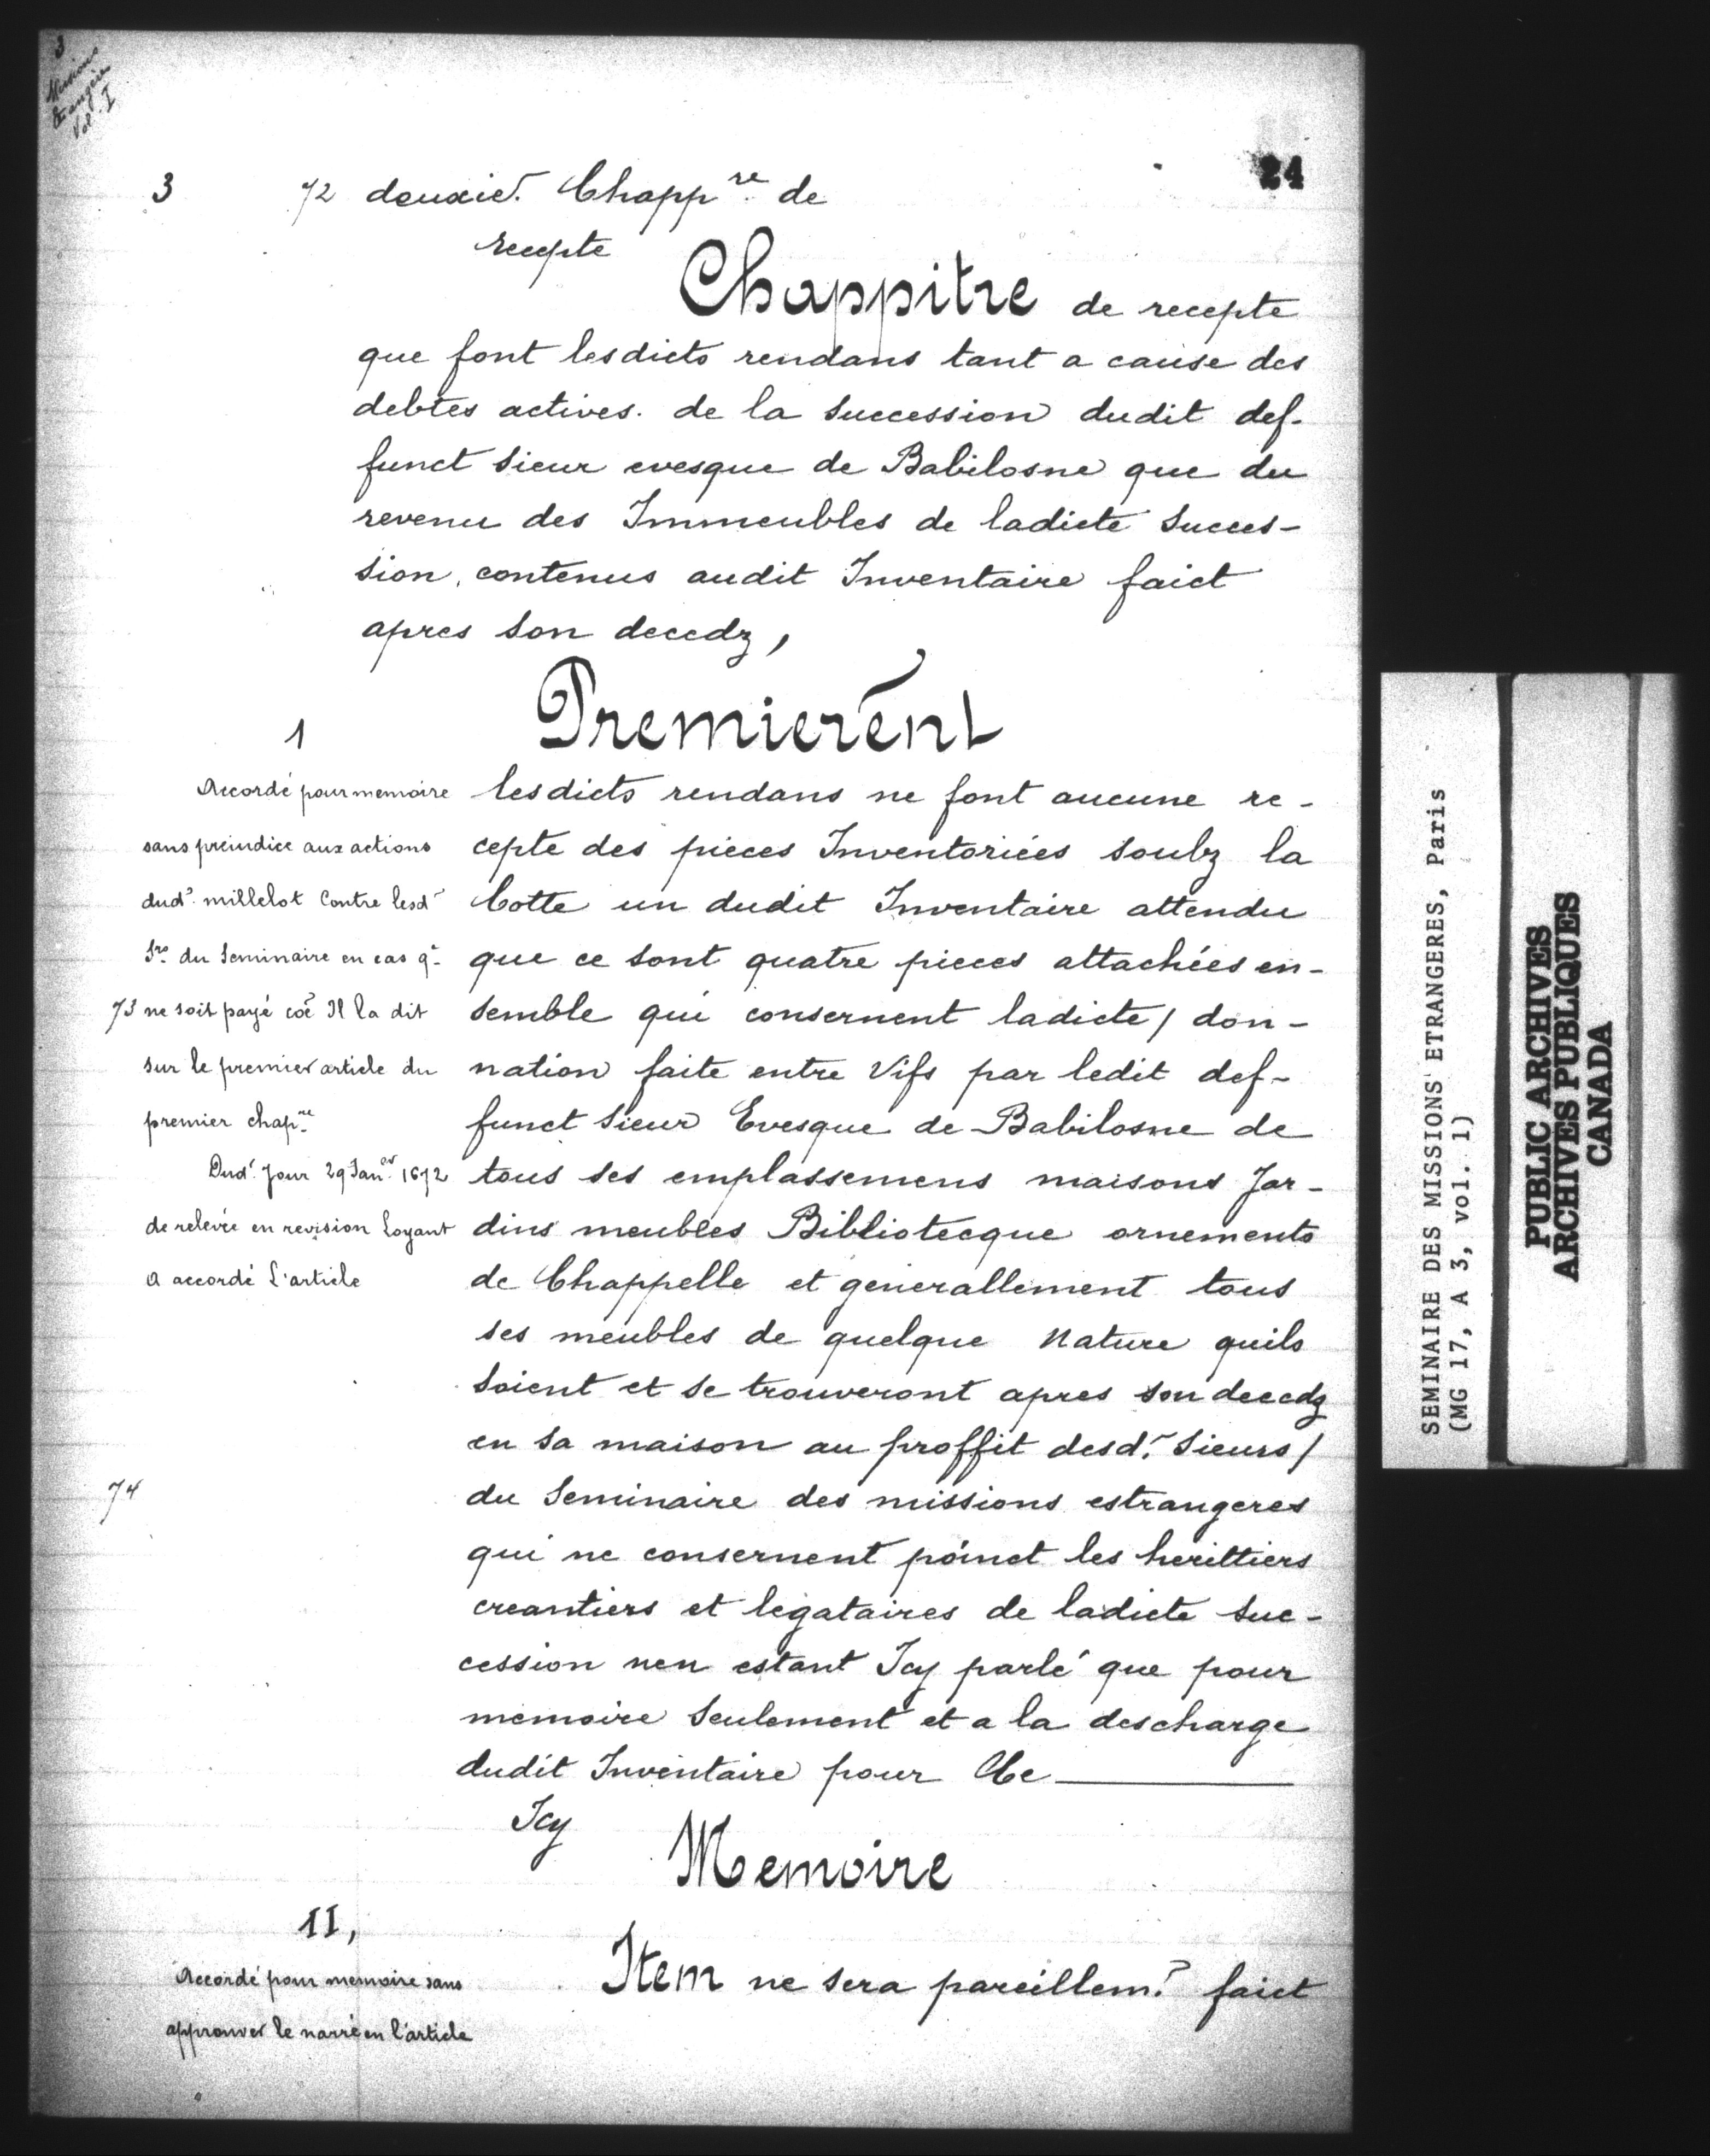 3
Missions
Etrangères
Vol. I
24
3
72 douxie. Chapp.re de
recepte
Chappitre de recepte
que font lesdicts rendans tant a cause des
debtes actives. de la Succession dudit def-
funct Sieur evesque de Babilosne que du
revenu des Immeubles de ladicte Succes-
sion, contenus audit Inventaire faict
apres son decedz,
Premierent
1
Accordé pour memoire
sans preiudice aux actions
dud. millelot Contre lesd
Srs du Seminaire en cas q.
73 ne soit payé coe Il la dit
sur le premier article du
premier chap.re
Dud. Jour 29 Janer 1672
de relevée en revision Loyant
a accordé L'article
lesdicts rendans ne font aucune re-
cepte des pieces Inventoriées soubz la
Cotte un dudit Inventaire attendu
que ce sont quatre pieces attachées en-
semble qui consernent ladicte / don-
nation faite entre Vifs par ledit def-
funct Sieur Evesque de Babilosne de
tous ses emplassemens maisons Jar-
dins meubles Bibliotecque ornements
de Chappelle et generallement tous
ses meubles de quelque Nature quils
soient et se trouveront apres son decedz
en sa maison au proffit desd. Sieurs /
74
du Seminaire des missions estrangeres
qui ne consernent poinct les herittiers
creantiers et legataires de ladicte Suc-
cession nen estant Icy parlé que pour
memoire Seulement et a la descharge
dudit Inventaire pour Ce
Icy
Memoire
II,
Accordé pour memoire sans
approuver le narré en l'article
Item ne sera pareillem.t faict
SEMINAIRE DES MISSIONS ETRANGERES, Paris
(MG 17, A 3, vol. 1)
PUBLIC ARCHIVES
ARCHIVES PUBLIQUES
CANADA